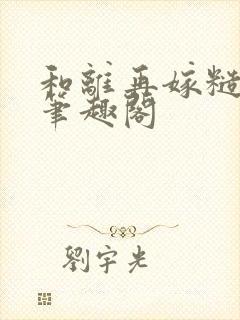 和離再嫁糙
筆趣閣
劉宇光